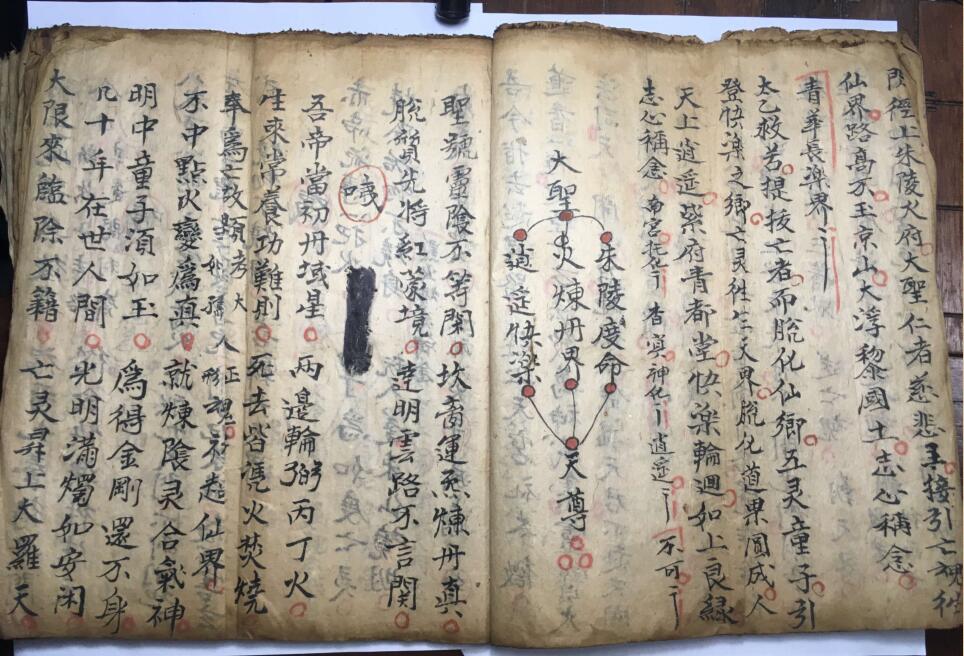 閉經上朱陵火府大聖仁者慈悲主接引亡魂往
仙界路高不玉京山大浮黎國土志心稱念
青華長楽界
太乙救苦提拔亡者而脫化仙鄉五灵童子引
登快楽之鄉亡灵往生天界脫化道果圓成人
天上逍遥紫府青都堂快楽輪迴如上良緣
志心稱念 南宮 杳冥神化 逍遥 不可
朱陵度命
大聖 炎煉丹界 天尊
逍遥快樂
聖號靈陰不等閑 坎离運炁煉丹真
脫質先將紅蒙境 達明雲路不言関
咦
吾帝當初丹域星 两邉輪 丙丁火
生来常養功難則 死去皆憑火焚燒
奉爲亡故顕考 大人 正 形魂 仙界
不中點火變爲真 就煉陰灵合氣神
明中童子須如玉 爲得金剛還不身
几十年在世人間 光明滿燭如安闲
大限來臨除不籍 亡灵昇上大羅天